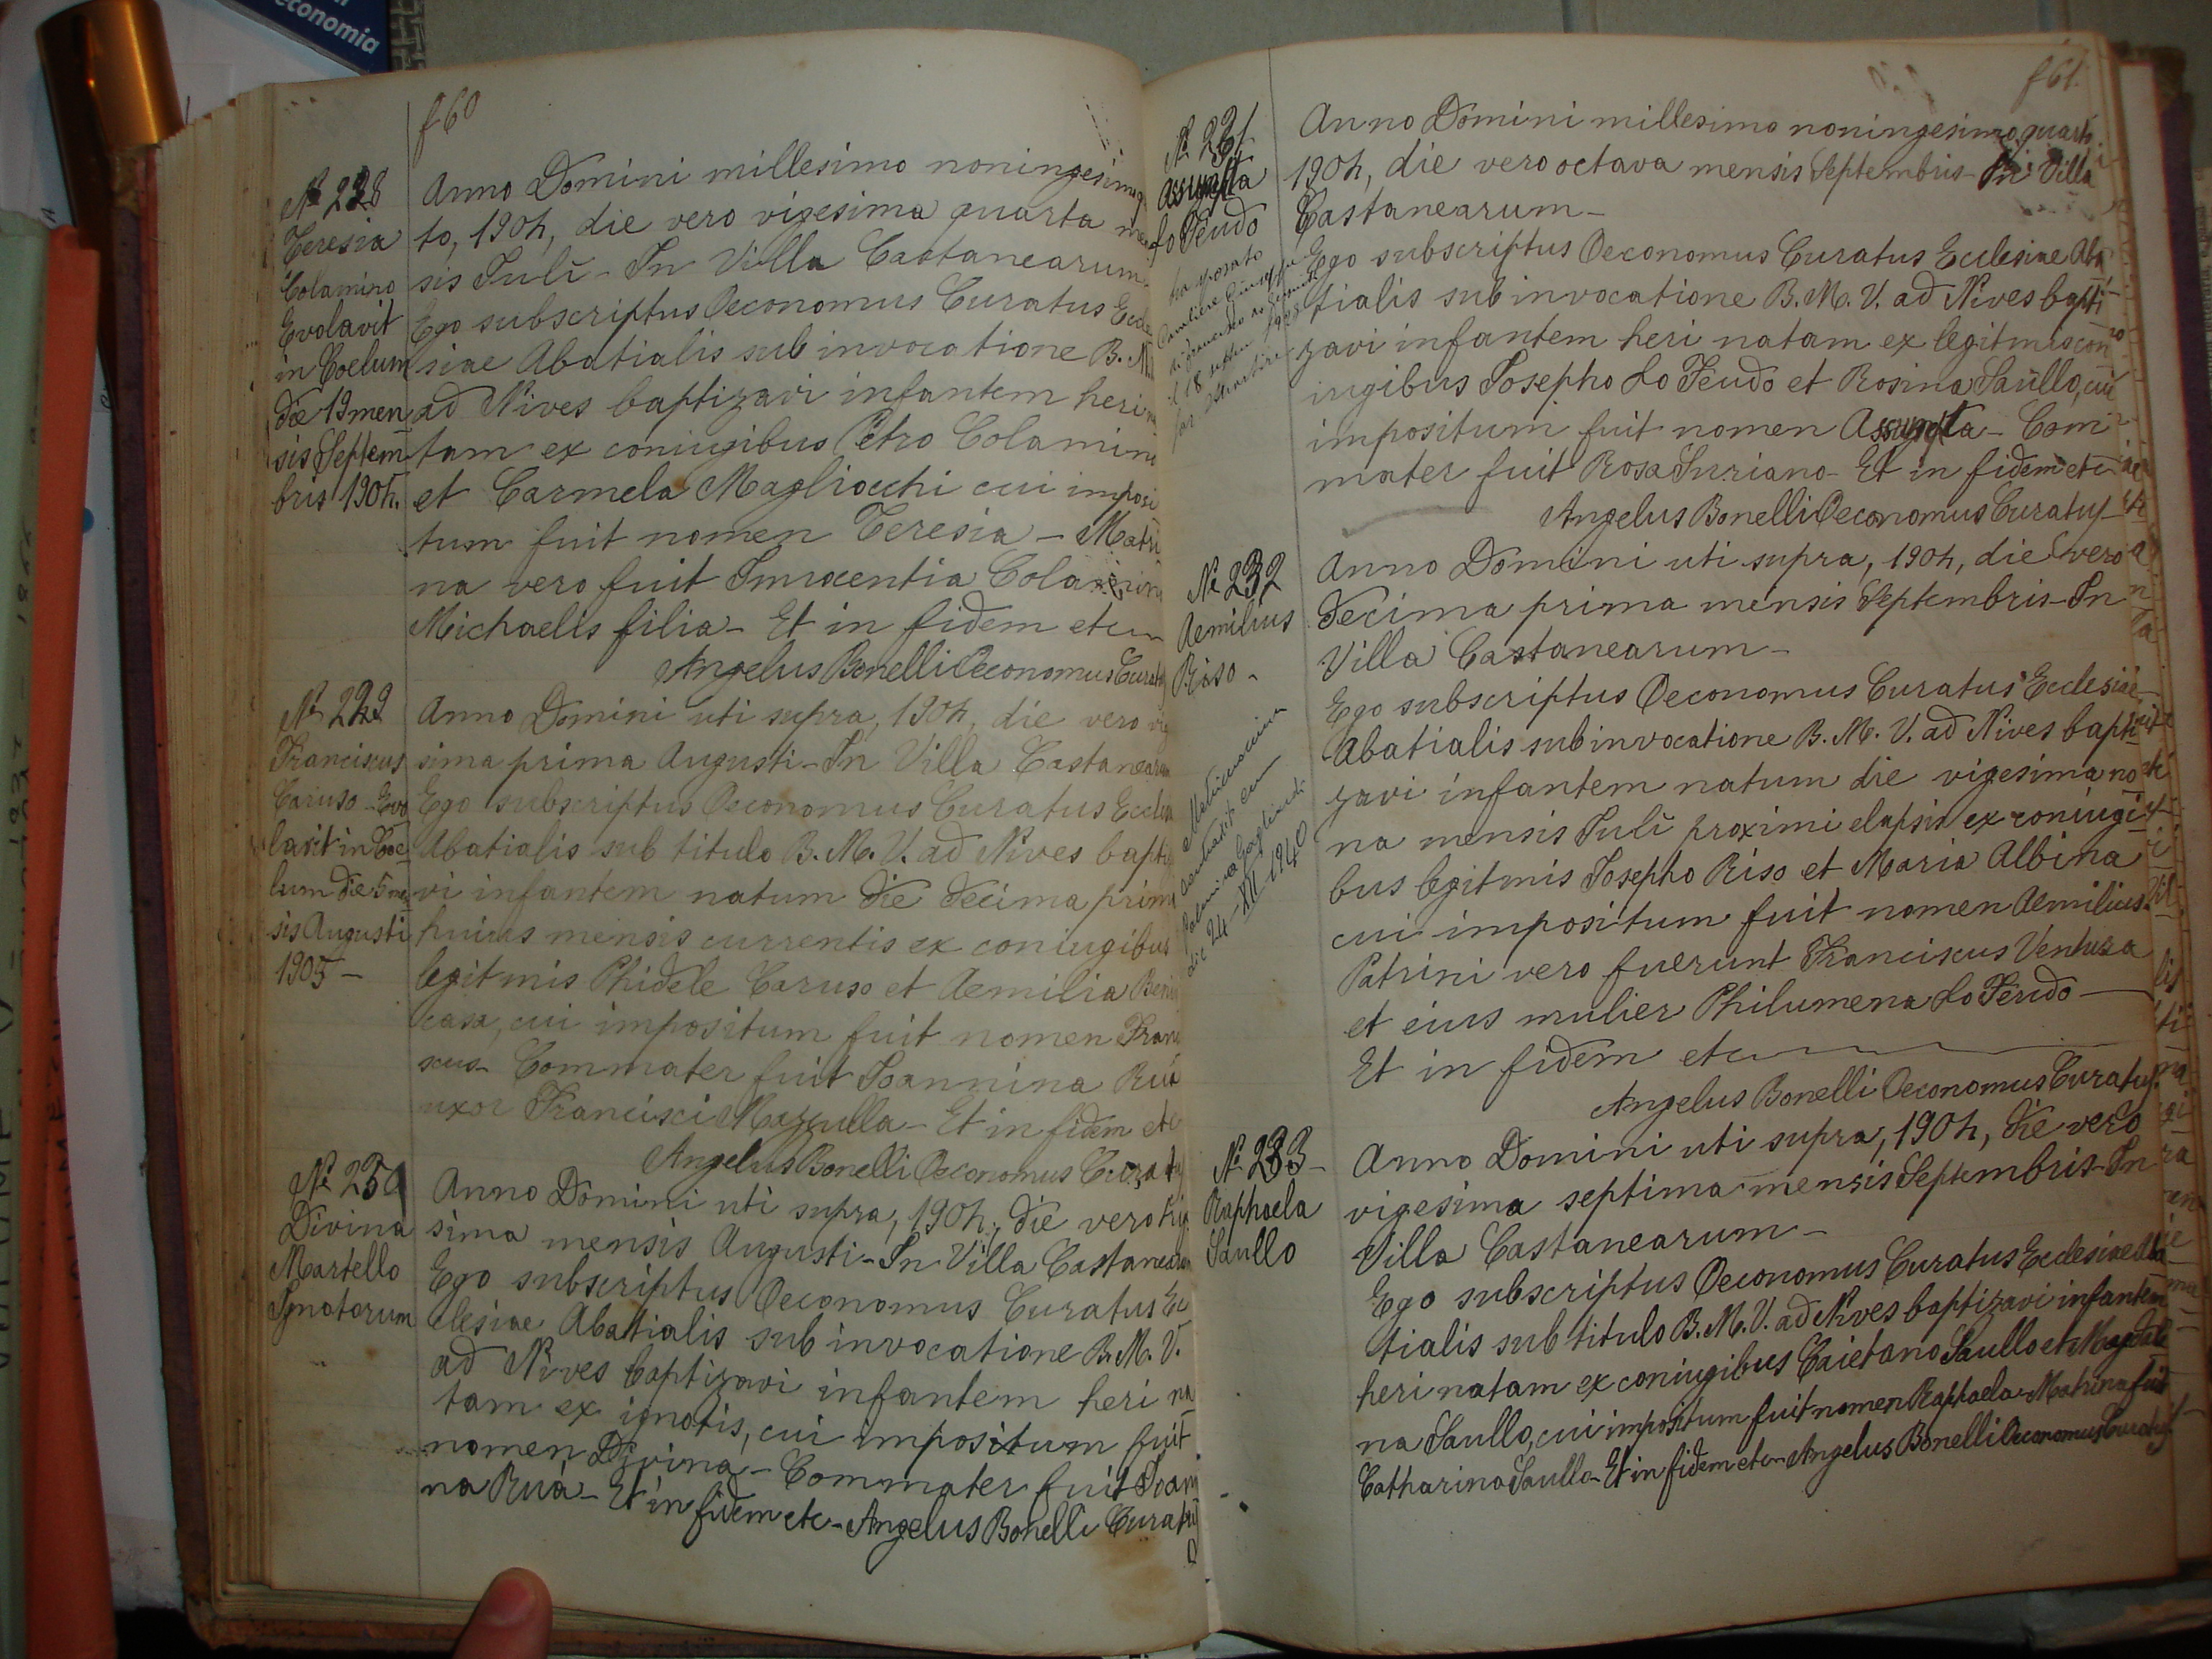 economia
f 60
Nº 228
Teresia
Colamino
Evolavit
in Coelum
die 19 men
sis Septem
bris 1904.
Anno Domini millesimo noningesimo
to, 1904, die vero vigesima quarta
sis Iulî - In Villa Castanearum
Ego subscriptus Oeconomus Curatus Eccle
siae Abatialis sub invocatione B. M.
ad Nives baptizavi infantem heri
tam ex coniugibus Petro Colamino
et Carmela Magliocchi cui imposi
tum fuit nomen Teresia - Matri
na vero fuit Innocentia Colamino
Michaelis filia - Et in fidem etc
Angelus Bonelli Oeconomus Curatus
Nº 229
Franciscus
Caruso - Evo
lavit in Coe-
lum die 5 men
sis Augusti
1905 -
Anno Domini uti supra, 1904, die vero vig
sima prima Augusti - In Villa Castanearum
Ego subscriptus Oeconomus Curatus Eccles
Abatialis sub titulo B. M. V. ad Nives bapti
vi infantem natum die decima prima
huius mensis currentis ex coniugibus
legitmis Phidele Caruso et Aemilia Benin
casa, cui impositum fuit nomen Franc
scus - Commater fuit Ioannina Ruà
uxor Francisci Mazzulla - Et in fidem etc
Angelus Bonelli Oeconomus Curatus
Nº 230
Divina
Martello
Ignotorum
Anno Domini uti supra, 1904, die vero trig
sima mensis Augusti - In Villa Castanearum
Ego subscriptus Oeconomus Curatus Ec
clesiae Abatialis sub invocatione B. M. V.
ad Nives baptizavi infantem heri na
tam ex ignotis, cui impositum fuit
nomen Divina - Commater fuit Ioan
na Ruà - Et in fidem etc - Angelus Bonelli Curatus
f 61.
Nº 231
Assumpta
Lo Feudo
ha sposato
Giuseppe
di Francesco
il 18 sett
Anno Domini millesimo noningesimo quarto
1904, die vero octava mensis Septembris - In Villa
Castanearum -
Ego subscriptus Oeconomus Curatus Ecclesiae Aba
tialis sub invocatione B. M. V. ad Nives bapti
zavi infantem heri natam ex legitmis con
iugibus Iosepho Lo Feudo et Rosina Saullo, cui
impositum fuit nomen Assumpta - Com
mater fuit Rosa Suriano - Et in fidem etc
Angelus Bonelli Oeconomus Curatus
Nº 232
Aemilius
Riso -
Matrimonium
contraxit cum
Palmira Gagliardi
die 24 - XII - 1940
Anno Domini uti supra, 1904, die vero
decima prima mensis Septembris - In
Villa Castanearum -
Ego subscriptus Oeconomus Curatus Ecclesiae
Abatialis sub invocatione B. M. V. ad Nives bapti
zavi infantem natum die vigesima no
na mensis Iulî proximi elapsis ex coniugi
bus legitmis Iosepho Riso et Maria Albina
cui impositum fuit nomen Aemilius.
Patrini vero fuerunt Franciscus Ventura
et eius mulier Philumena Lo Feudo -
Et in fidem etc
Angelus Bonelli Oeconomus Curatus
Nº 233 -
Raphaela
Saullo
Anno Domini uti supra, 1904, die vero
vigesima septima mensis Septembris - In
Villa Castanearum -
Ego subscriptus Oeconomus Curatus Ecclesiae Aba
tialis sub titulo B. M. V. ad Nives baptizavi infantem
heri natam ex coniugibus Caietano Saullo et Magdale
na Saullo, cui impositum fuit nomen Raphaela - Matrina fuit
Catharina Saullo - Et in fidem etc - Angelus Bonelli Oeconomus Curatus